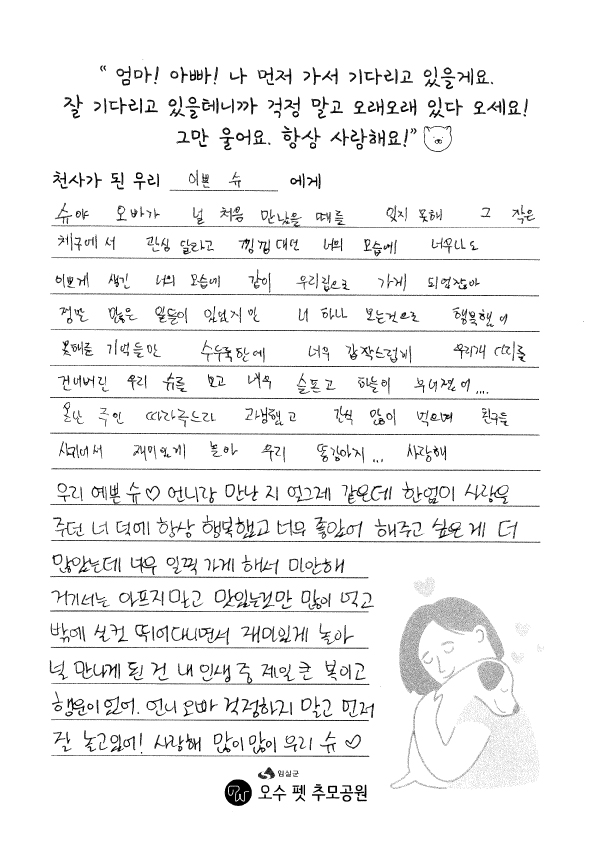 “ 엄마! 아빠! 나 먼저 가서 기다리고 있을게요.
잘 기다리고 있을테니까 걱정 말고 오래오래 있다 오세요!
그만 울어요. 항상 사랑해요!”
천사가 된 우리 이쁜 슈 에게
슈야 오빠가 널 처음 만났을 때를 잊지 못해 그 작은
체구에서 관심 달라고 낑낑대던 너의 모습에 너무나도
이쁘게 생긴 너의 모습에 같이 우리집으로 가게 되었잖아
정말 많은 일들이 있었지만 너 하나 보는것으로 행복했어
못해준 기억들만 수두룩한데 너무 갑작스럽게 무지개 다리를
건너버린 우리 슈를 보고 너무 슬프고 하늘이 무너졌어....
못난 주인 따라주느라 고생했고 간식 많이 먹으며 친구들
사귀어서 재미있게 놀아 우리 똥강아지... 사랑해
우리 예쁜 슈♡ 언니랑 만난 지 엊그제 같은데 한없이 사랑을
주던 너 덕에 항상 행복했고 너무 좋았어 해주고 싶은 게 더
많았는데 너무 일찍 가게 해서 미안해
거기서는 아프지 말고 맛있는것만 많이 먹고
밖에 실컷 뛰어다니면서 재미있게 놀아
널 만나게 된 건 내 인생 중 제일 큰 복이고
행운이었어. 언니 오빠 걱정하지 말고 먼저
잘 놀고있어! 사랑해 많이많이 우리 슈 ♡
임실군
오수 펫 추모공원